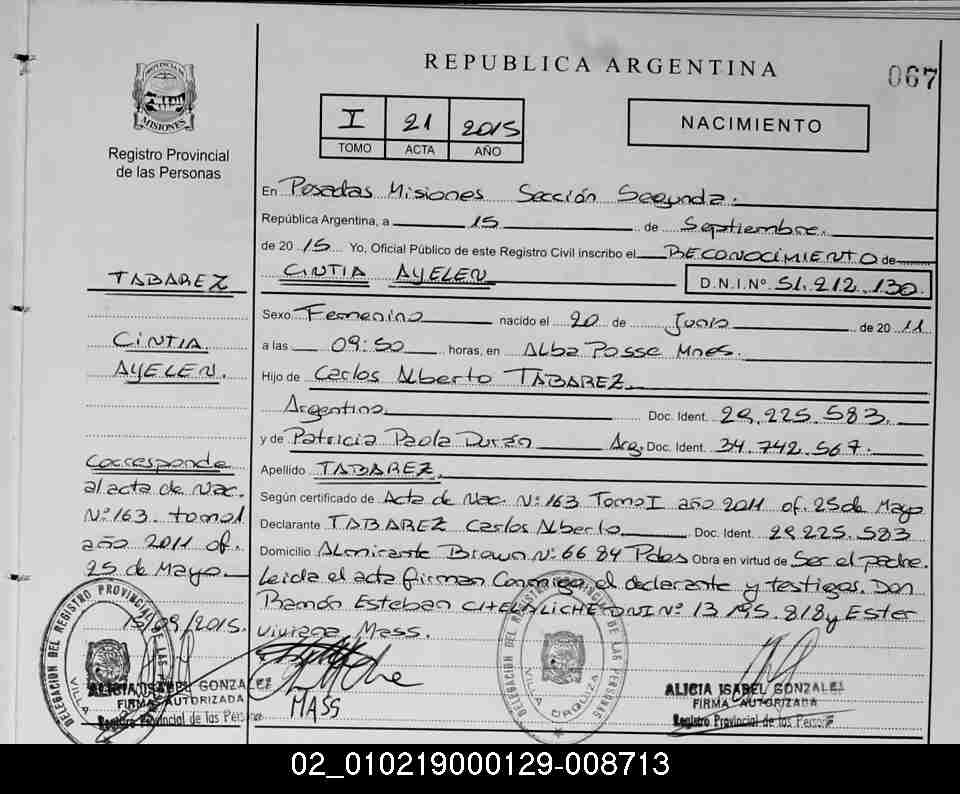 REPUBLICA ARGENTINA
067
PROVINCIA DE
MISIONES
Registro Provincial
de las Personas
I 21 2015
TOMO ACTA AÑO
NACIMIENTO
En Posadas Misiones Sección Segunda.
República Argentina, a 15 de Septiembre.
de 20 15 Yo, Oficial Público de este Registro Civil inscribo el RECONOCIMIENTO de
CINTIA AYELEN D.N.I.Nº 51.212.130.
Sexo Femenino nacido el 20 de Junio de 20 11
a las 09:50 horas, en Alba Posse Mnes.
Hijo de Carlos Alberto TABAREZ.
Argentino. Doc. Ident. 29.225.583.
y de Patricia Paola Durán Arg. Doc. Ident. 34.742.567.
Apellido TABAREZ.
Según certificado de Acta de Nac. Nº 163 Tomo I año 2011 of. 25 de Mayo
Declarante TABAREZ Carlos Alberto Doc. Ident. 29.225.583
Domicilio Almirante Brown Nº 6684 Pdas Obra en virtud de Ser el padre.
Leida el acta firman Conmigo el declarante y testigos. Don
Ramón Esteban DNI Nº 13.195.818 y Ester
Viviana Mass.
TABAREZ
CINTIA
AYELEN.
Corresponde
al acta de Nac.
Nº 163. tomo 1
año 2011 of.
25 de Mayo
15/09/2015.
DELEGACION DEL REGISTRO PROVINCIAL DE LAS
VILLA
ALICIA ISABEL GONZALEZ
FIRMA AUTORIZADA
Registro Provincial de las Personas
MASS
DELEGACION DEL REGISTRO PROVINCIAL DE LAS PERSONAS
VILLA URQUIZA
ALICIA ISABEL GONZALEZ
FIRMA AUTORIZADA
Registro Provincial de las Personas
02_010219000129-008713